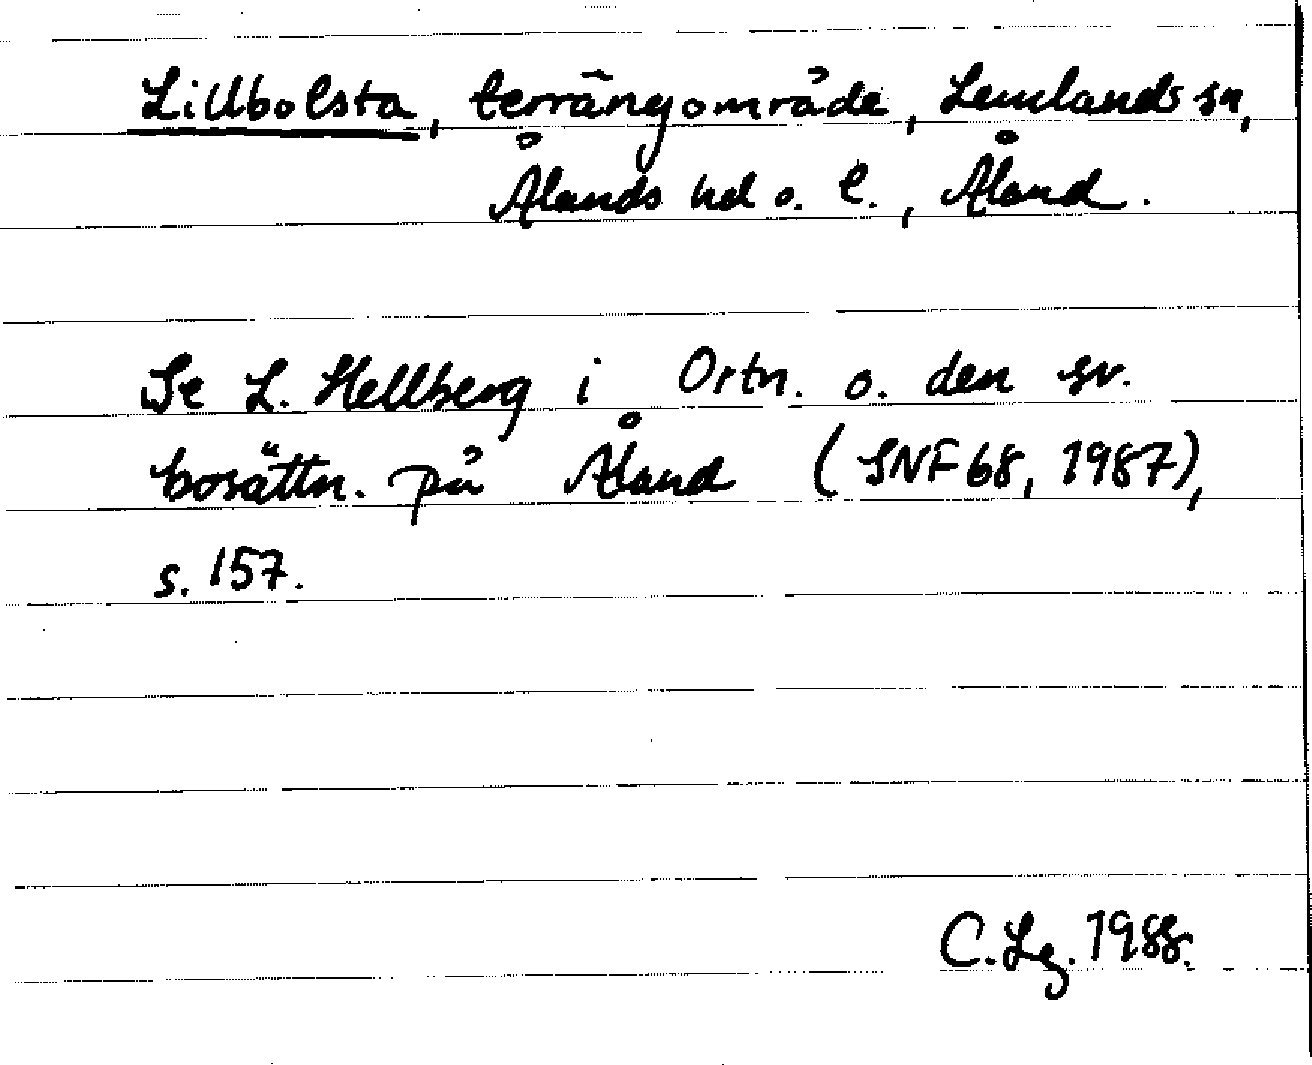 Lillbolsta, terrängområde, Lemlands sn,
Ålands hd o. l., Åland.
Se L. Hellberg i Ortn. o. den sv.
bosättn. på Åland (SNF 68, 1987),
s. 157.
C. Lg. 1988.